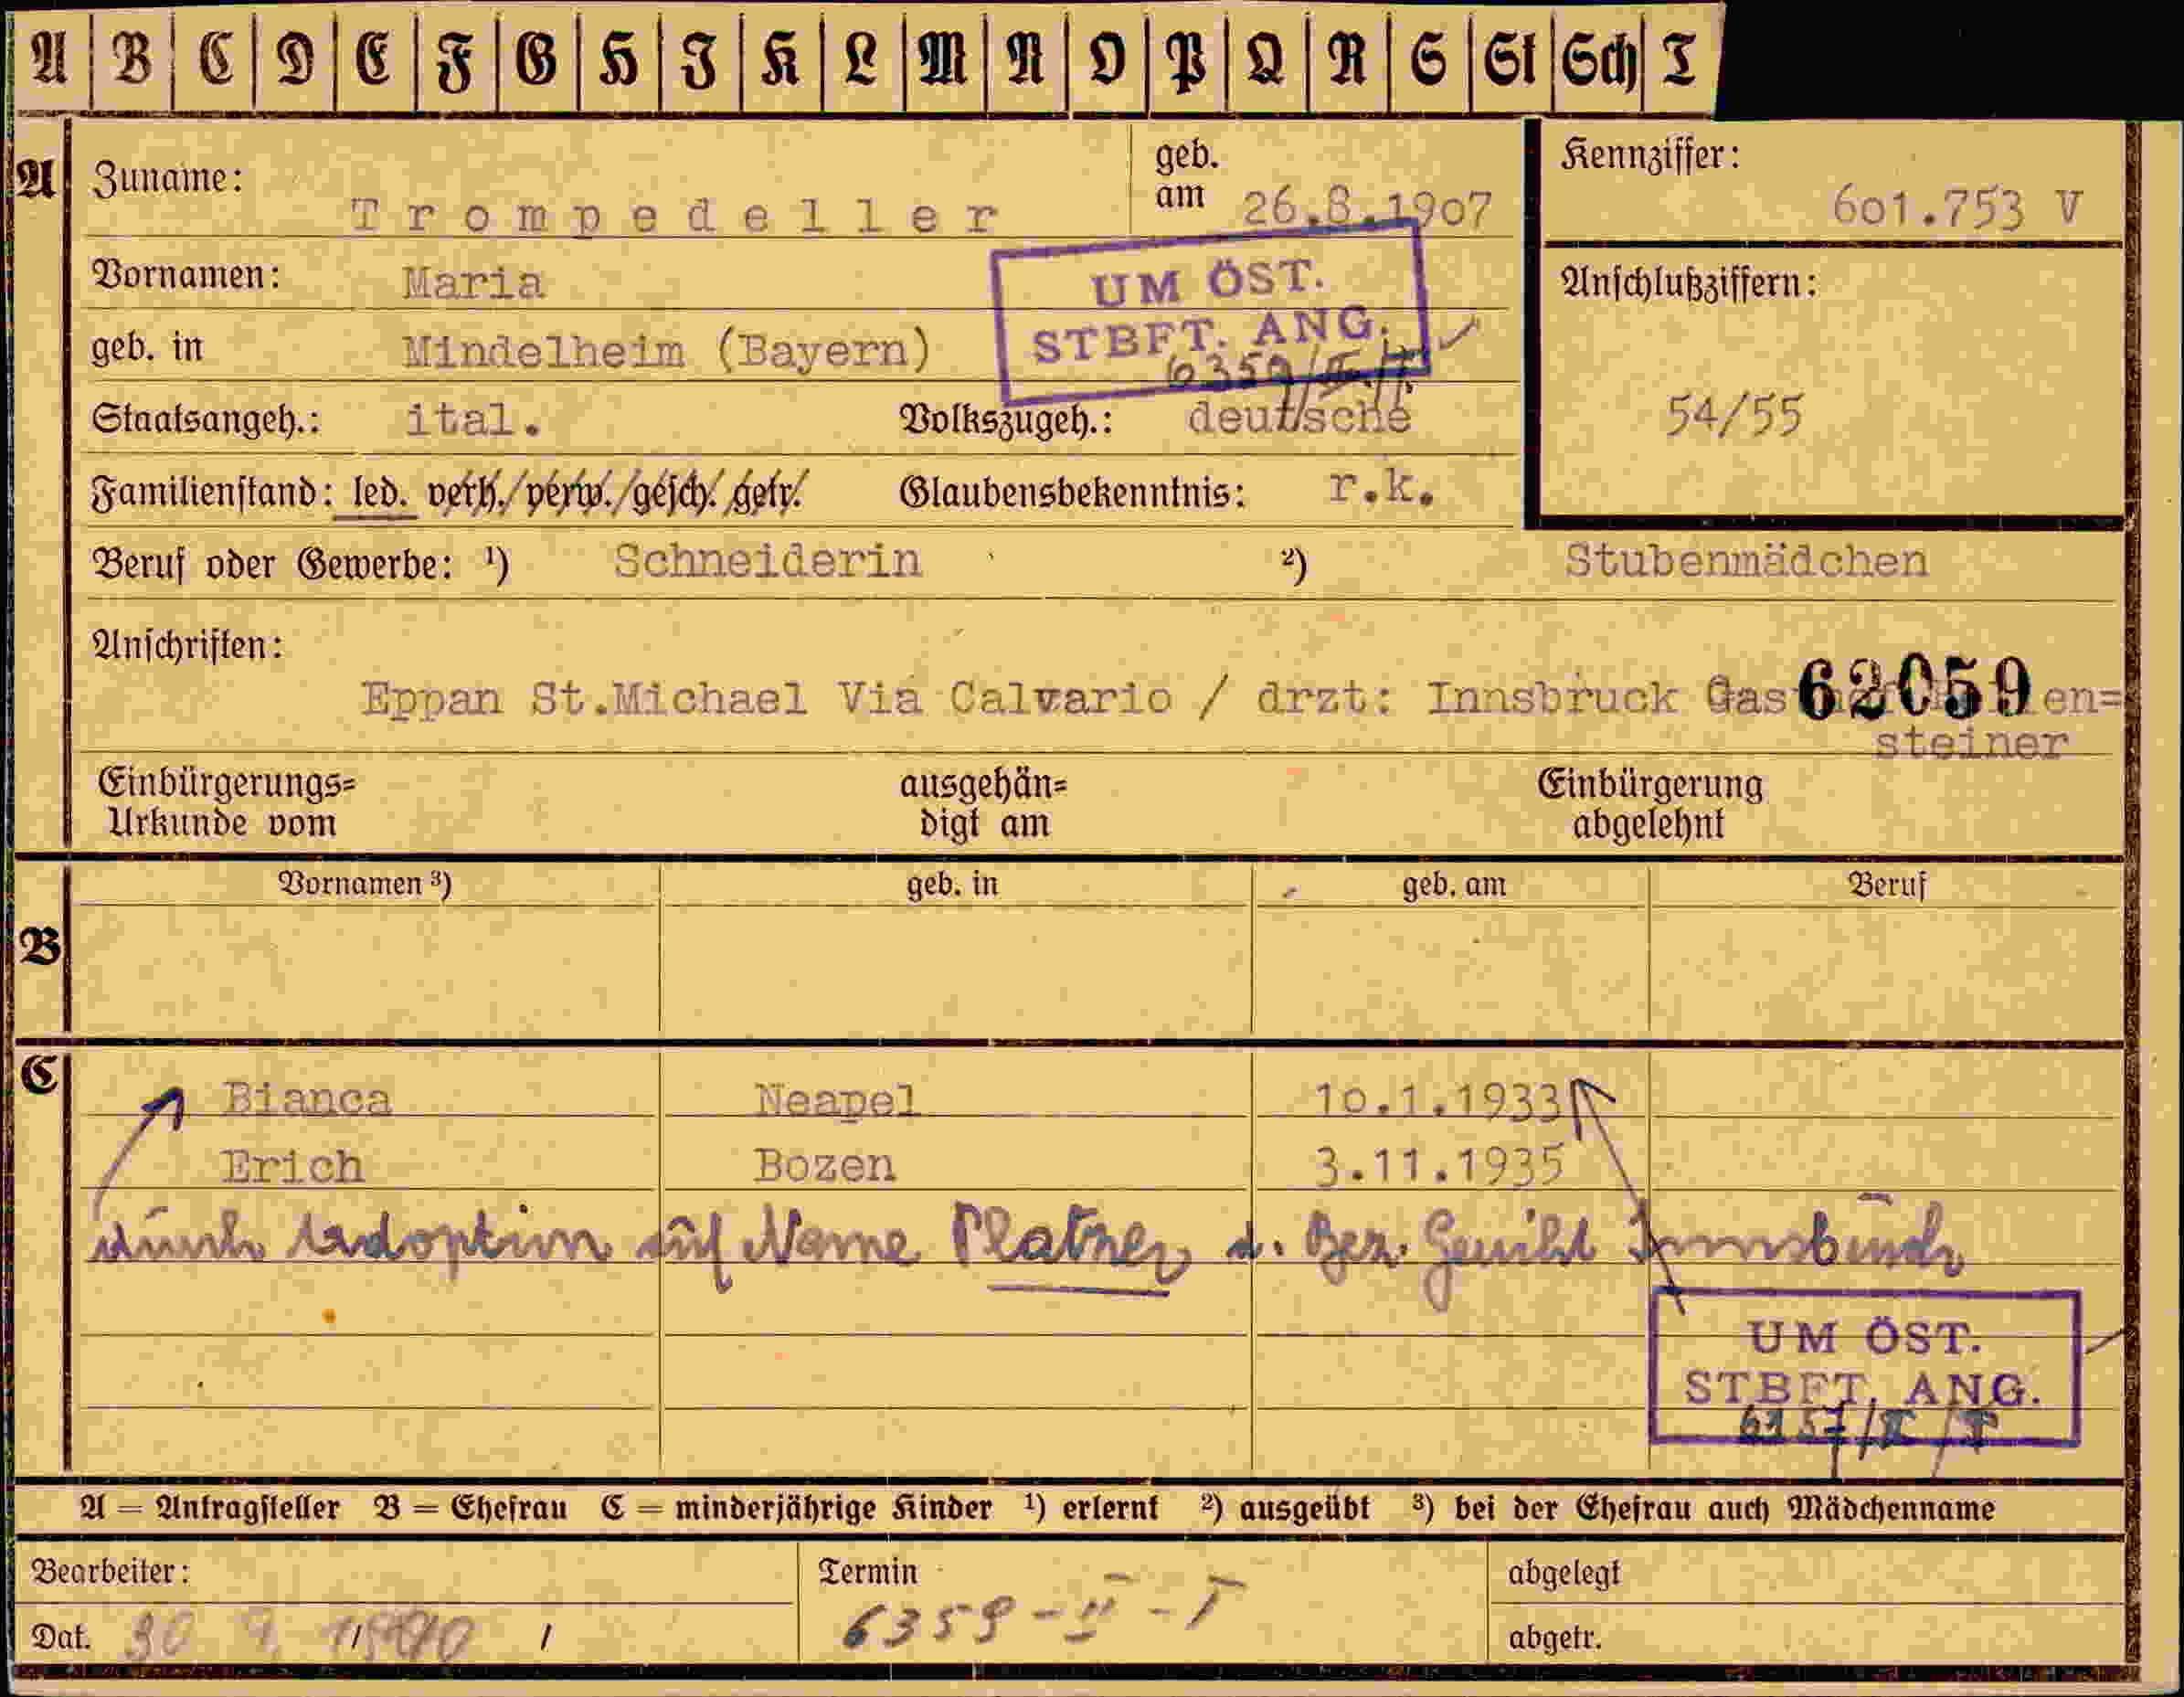 A B C D E F G H I K L M N O P Q R S St Sch T
A Zuname: Trompedeller geb. am 26.8.1907 Kennziffer: 601.753 V
Vornamen: Maria
UM ÖST. STBFT. ANG.
Anschlußziffern:
geb. in Mindelheim (Bayern)
54/55
Staatsangeh.: ital. Volkszugeh.: deutsche
Familienstand: led. verh./verw./gesch./getr. Glaubensbekenntnis: r.k.
Beruf oder Gewerbe: 1) Schneiderin 2) Stubenmädchen
Anschriften:
Eppan St.Michael Via Calvario / drzt: Innsbruck
62059
en=
steiner
Einbürgerungs= ausgehän= Einbürgerung
Urkunde vom digt am abgelehnt
Vornamen 3) geb. in geb. am Beruf
B
C
Bianca Neapel 10.1.1933
Erich Bozen 3.11.1935
durch Adoption auf Name Platner d. Bez. Gericht Innsbruck
UM ÖST.
STBFT. ANG.
A = Antragsteller B = Ehefrau C = minderjährige Kinder 1) erlernt 2) ausgeübt 3) bei der Ehefrau auch Mädchenname
Bearbeiter: Termin abgelegt
6359-II-T
Dat. abgetr.